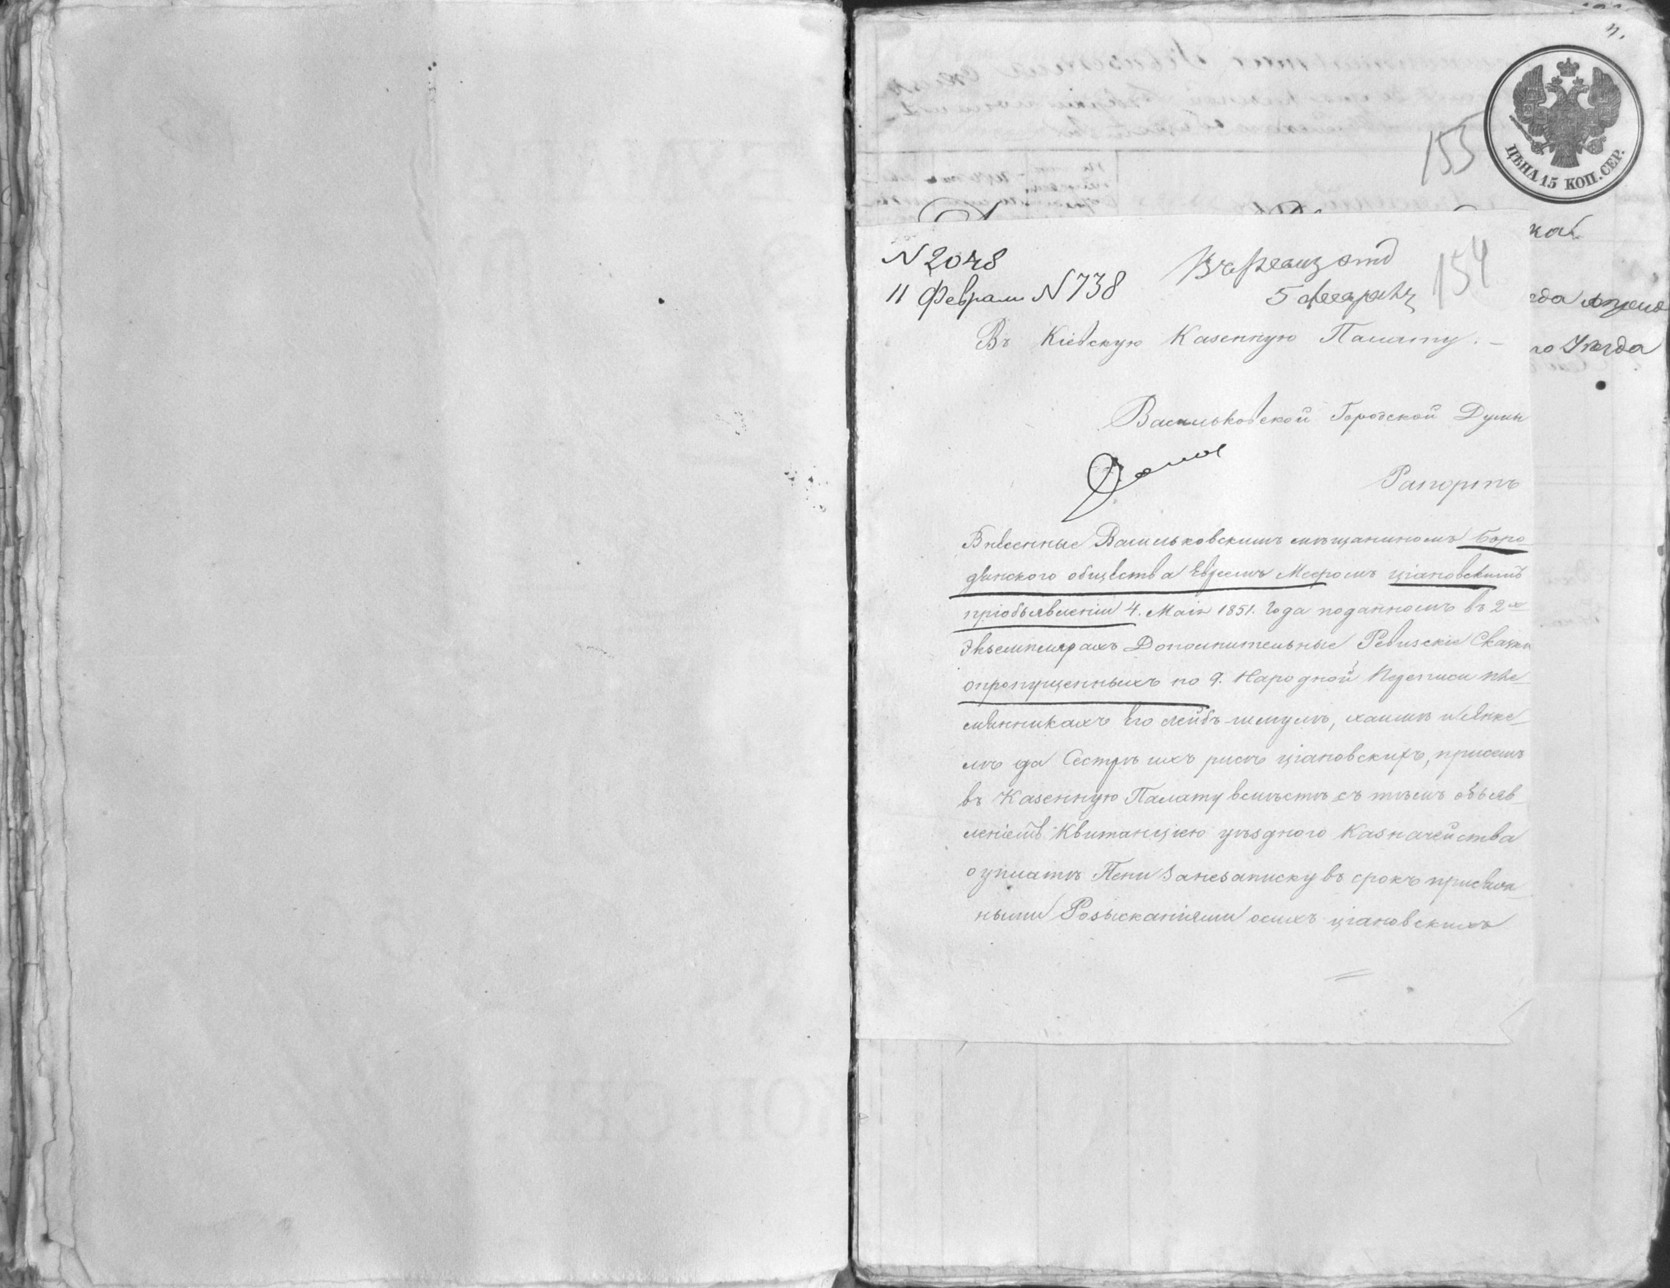 4.
ЦѢНА 15 КОП. СЕР.
155
кай
N 2048
Въ Ревиз отд
154
11 Февраля N 738
5 февраля
Въ Кіевскую Казенную Палату. –
го Уѣзда
Васильковской Городской Думы
Рапортъ
Внесенные Васильковскимъ мѣщаниномъ
общества Евреемъ Мееромъ Ціановскимъ
приобъявленіи 4. Маія 1851. Года поданномъ въ 2хъ
Экземплярахъ Дополнительные Ревизскіе Сказки
опропущенныхъ по 9. Народной Переписи пле-
мянникахъ его Лейбѣ-Шмулѣ, Хаимѣ и Янке-
лѣ да Сестрѣ ихъ Рислѣ Ціановскихъ, присемъ
въ Казенную Палату вмѣстѣ съ тѣмъ объяв-
леніемъ Квитанціею уѣзднаго Казначейства
о уплатѣ Пени Занезаписку въ срокъ
ными Розысканіями осихъ Ціановскихъ
КОП. СЕР.